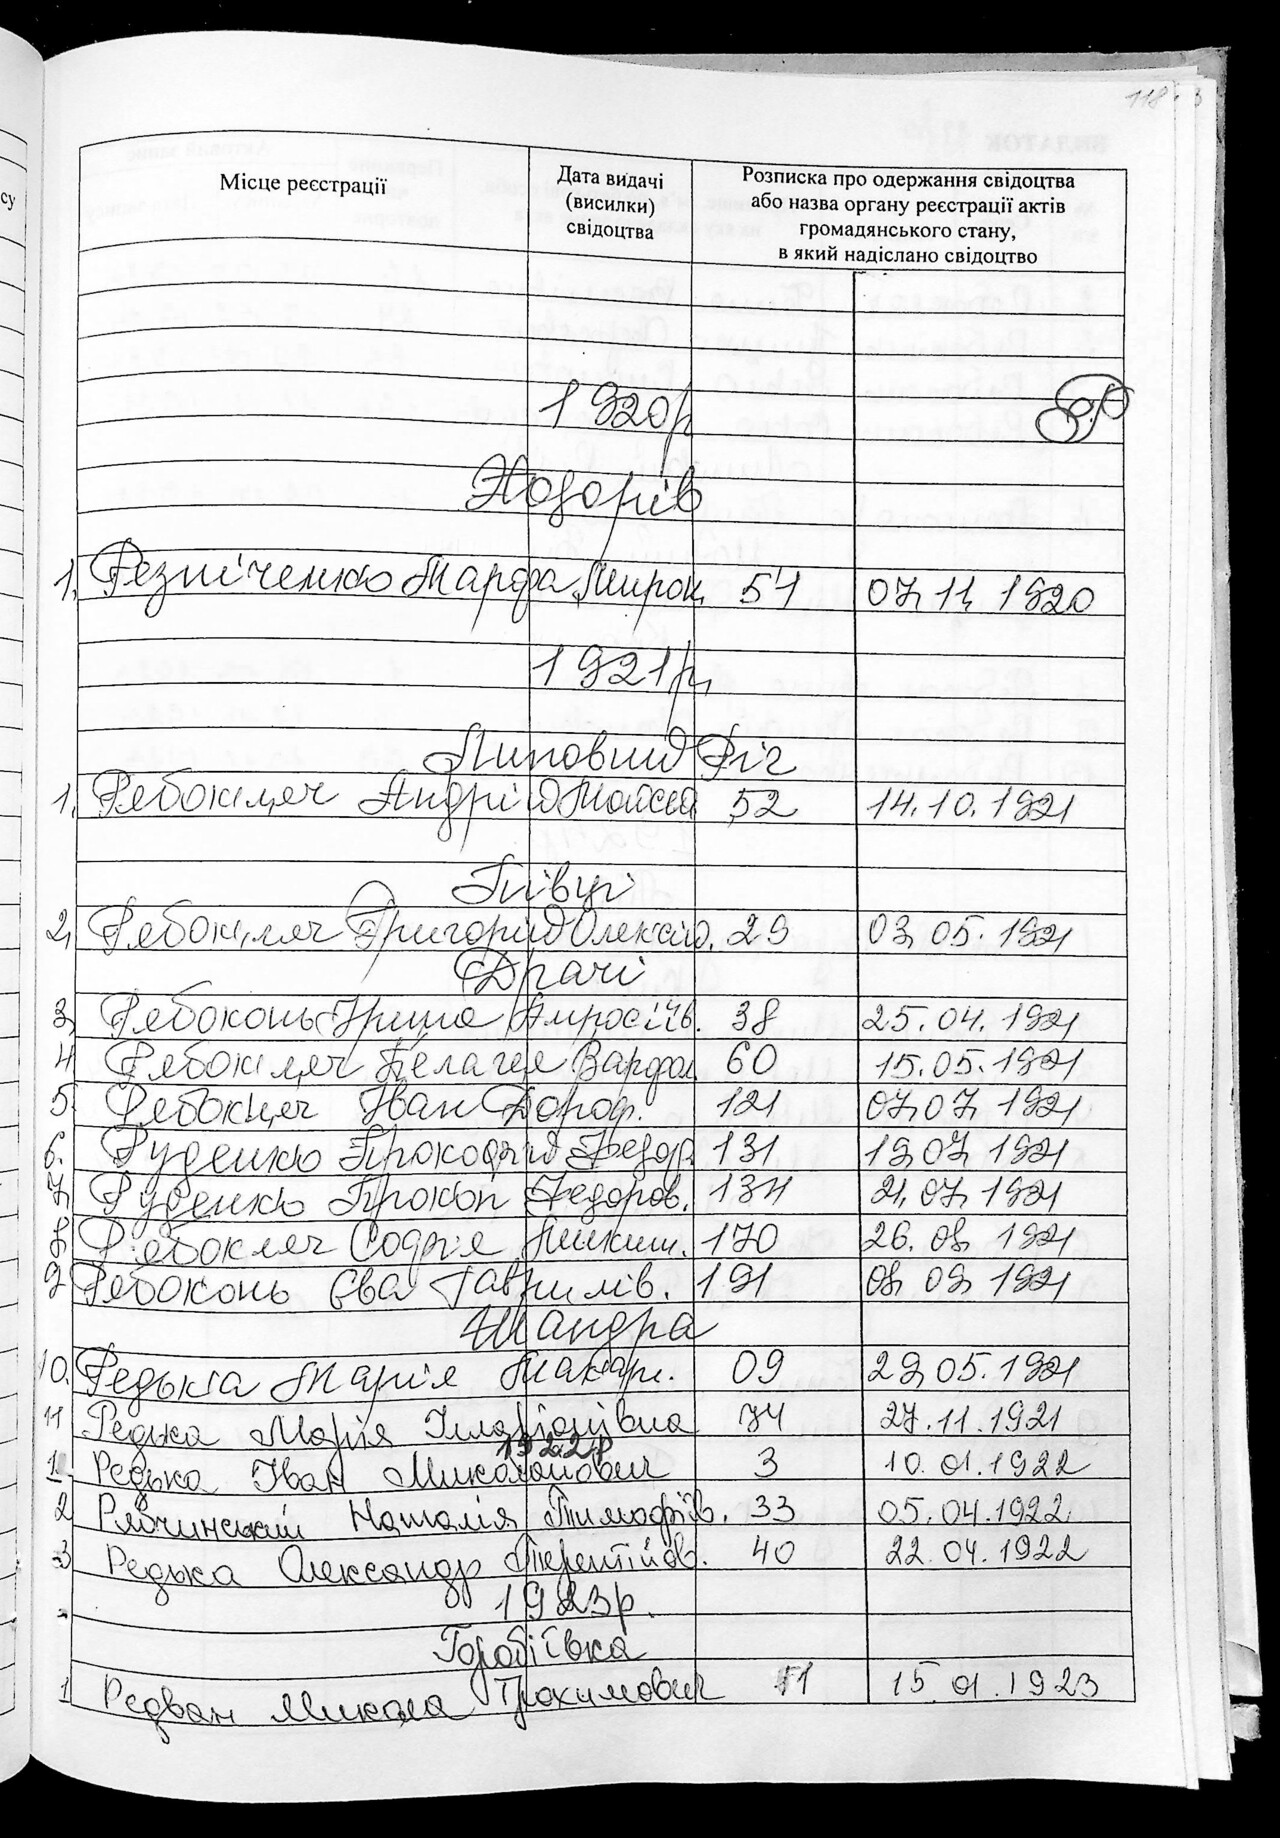 118
су
Місце реєстрації
Дата видачі
(висилки)
свідоцтва
Розписка про одержання свідоцтва
або назва органу реєстрації актів
громадянського стану,
в який надіслано свідоцтво
1920р
Р
Ходорів
1. Резніченко Марфа Мирон. 54 07.11.1920
1921р.
Липовий Ріг
1. Рябокляч Андрій Мойсей 52 14.10.1921
Півці
2. Рябокляч Григорій Олексій. 29 03.05.1921
Драчі
3. Рябоконь Ірина Амросіїв. 38 25.04.1921
4 Рябокляч Пелагея Варфол. 60 15.05.1921
5. Рябокляч Іван Дороф. 121 07.07.1921
6. Руденко Прокофій Федор. 131 19.07.1921
7. Руденко Прокоп Федоров. 134 21.07.1921
8 Рябокляч Софія Микит. 170 26.08.1921
9 Рябоконь Єва Гаврилів. 191 08.09.1921
Шандра
10. Редька Марія Макар. 09 29.05.1921
11 Редька Марія Іларіонівна 74 27.11.1921
1922р
1 Редька Іван Миколайович 3 10.01.1922
2 Рябчинській Наталія Тимофіїв. 33 05.04.1922
3 Редька Олександр Терентійов. 40 22.04.1922
1923р.
Горобіївка
1 Редван Микола Трохимович 1 15.01.1923